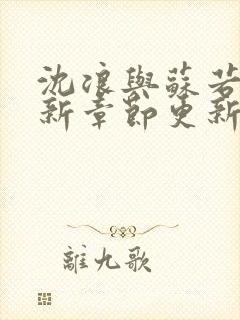 沈浪與蘇若
新章節更新
離九歌